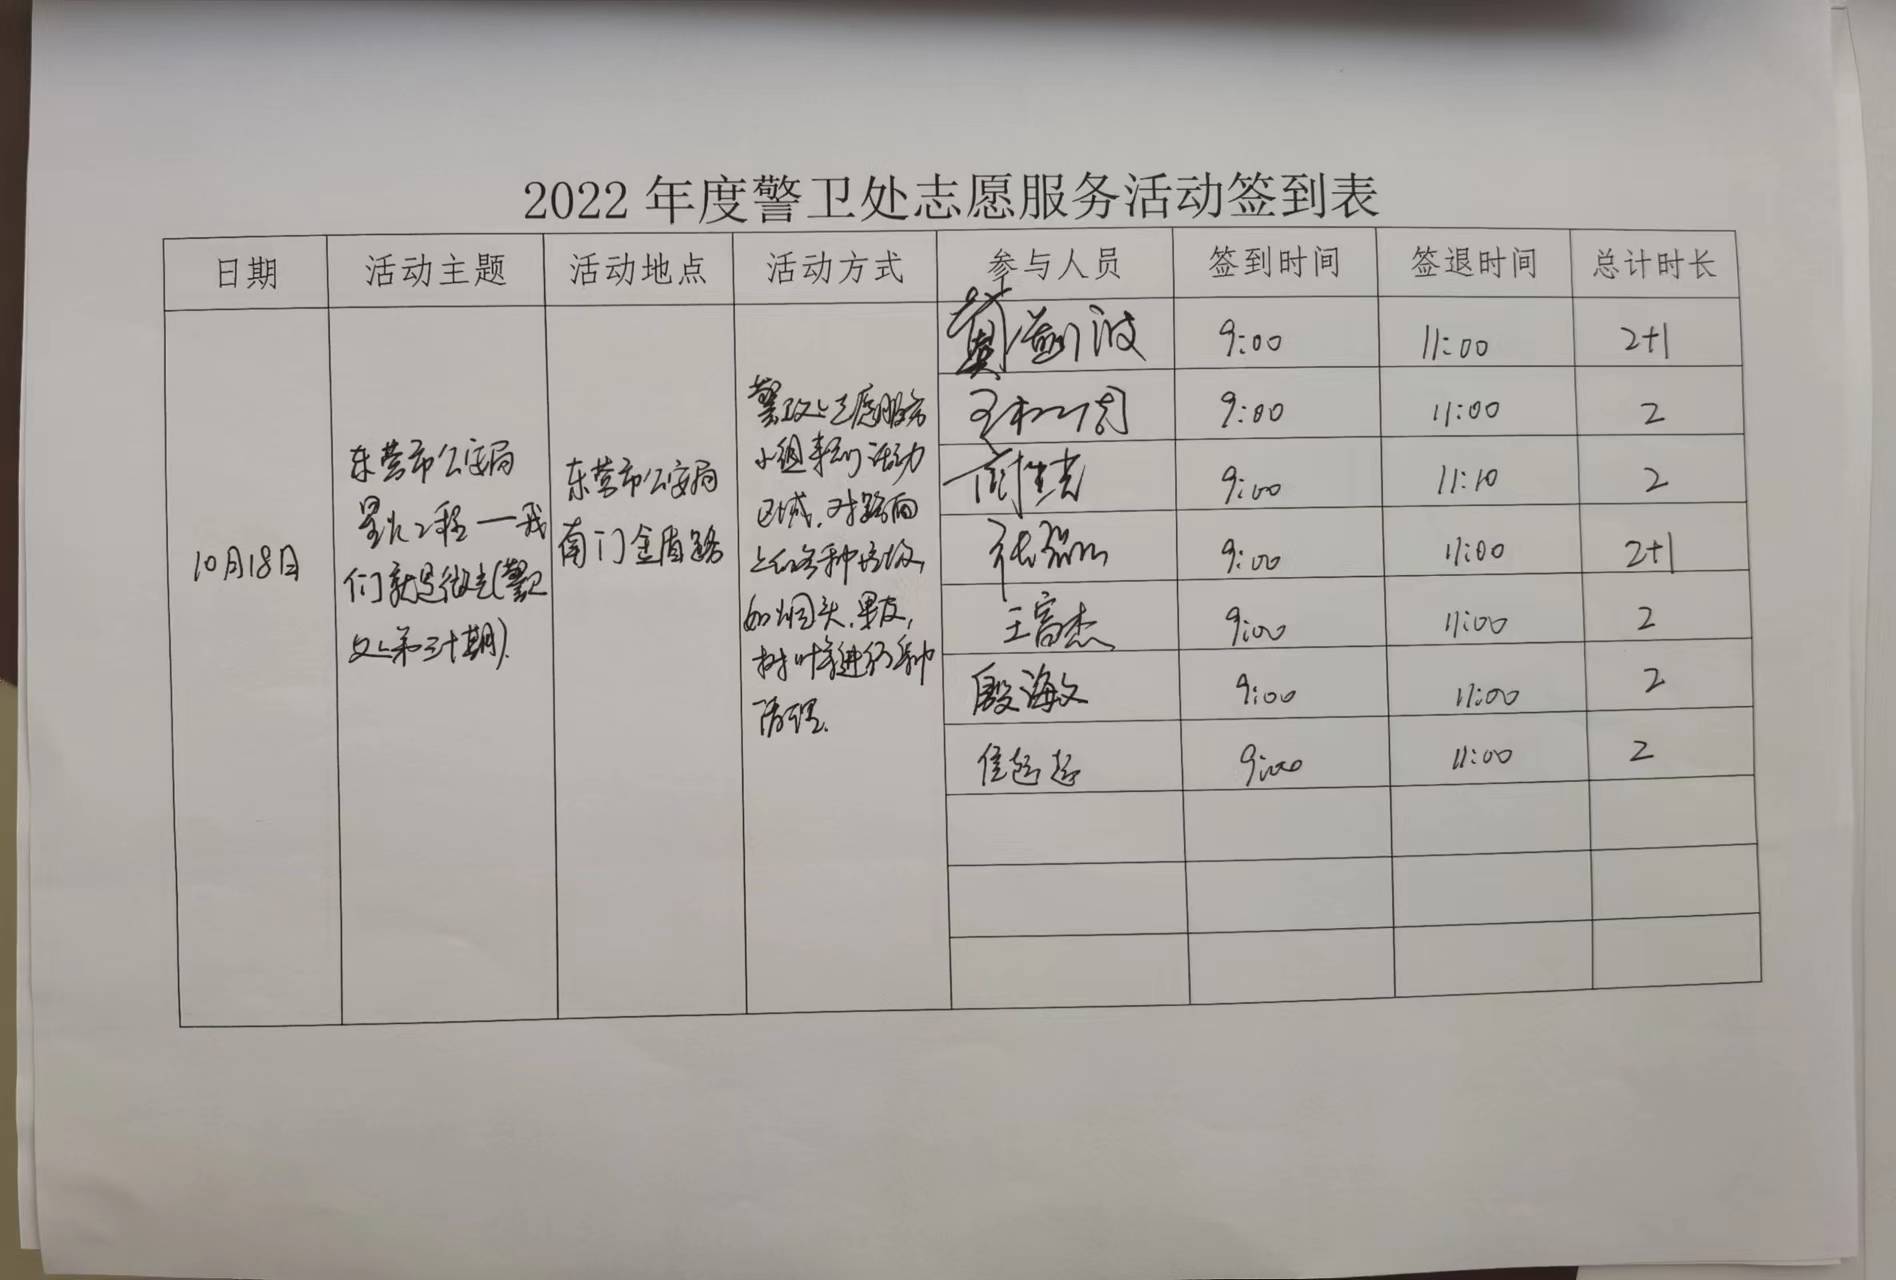 2022 年度警卫处志愿服务活动签到表
日期 活动主题 活动地点 活动方式 参与人员 签到时间 签退时间 总计时长
10月18日
东营市公安局
星火工程一我
们就是
第三十期).
东营市公安局
南门金盾路
志愿服务
小组来到活动
区域,对路面
上各种垃圾,
如烟头,果皮,
树叶等进行
清理.
9:00 11:00 2+1
9:00 11:00 2
9:00 11:10 2
9:00 11:00 2+1
王富杰 9:00 11:00 2
殷海文 9:00 11:00 2
9:00 11:00 2